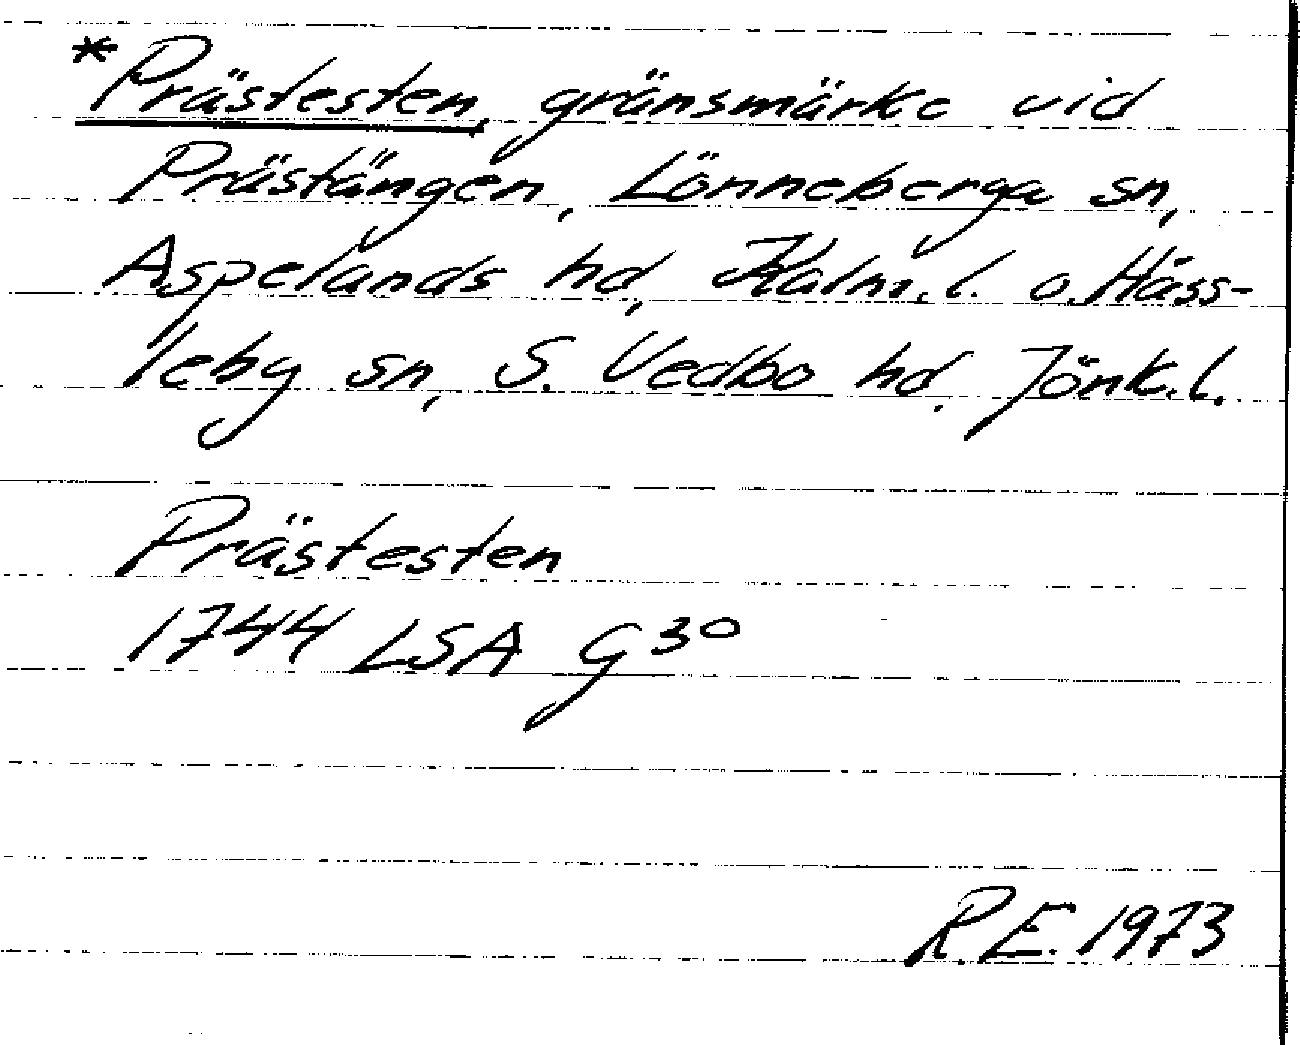 *Prästesten, gränsmärke vid
Prästängen, Lönneberga sn,
Aspelands hd, Kalm.l. o. Häss-
leby sn, S. Vedbo hd, Jönk.l.
Prästesten
1744 LSA G 30
R.E. 1973